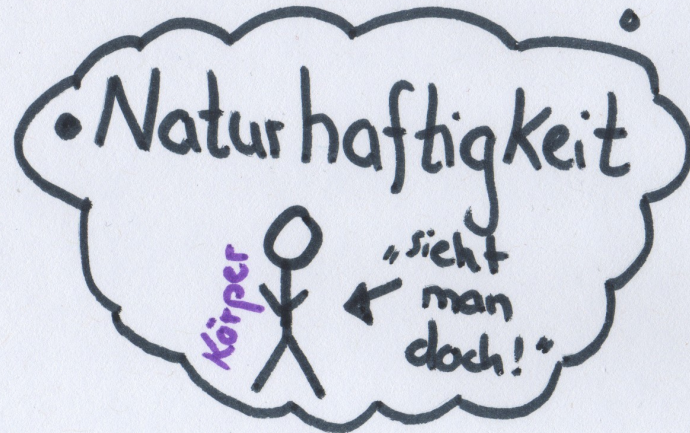 • Naturhaftigkeit
Körper
„sieht
man
doch!“